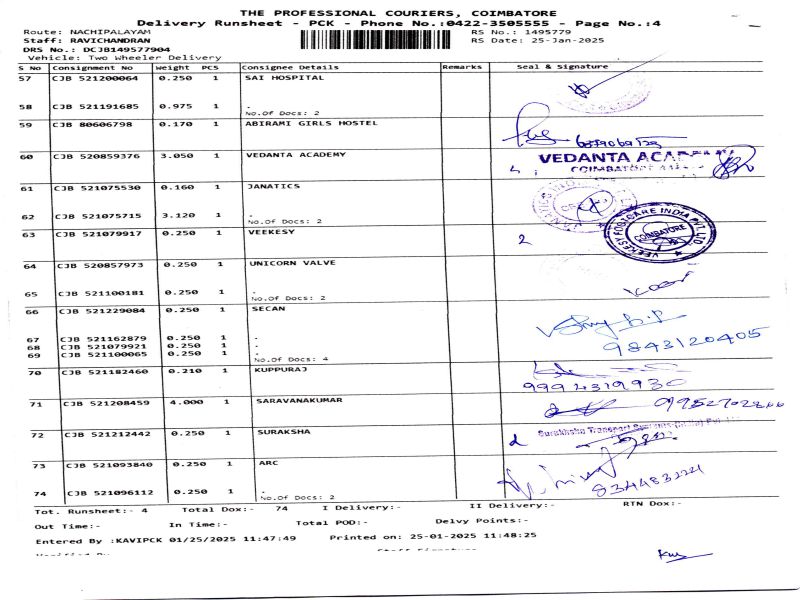 THE PROFESSIONAL COURIERS, COIMBATORE
Delivery Runsheet - PCK - Phone No.:0422-3505555 - Page No.:4
Route: NACHIPALAYAM RS No.: 1495779
Staff: RAVICHANDRAN RS Date: 25-Jan-2025
DRS No.: DCJB149577904
Vehicle: Two Wheeler Delivery
S No Consignment No Weight PCS Consignee Details Remarks Seal & Signature
57 CJB 521200064 0.250 1 SAI HOSPITAL
58 CJB 521191685 0.975 1 .
No.Of Docs: 2
59 CJB 80606798 0.170 1 ABIRAMI GIRLS HOSTEL
60 CJB 520859376 3.050 1 VEDANTA ACADEMY VEDANTA ACA
COIMBATORE
61 CJB 521075530 0.160 1 JANATICS
62 CJB 521075715 3.120 1 .
No.Of Docs: 2
63 CJB 521079917 0.250 1 VEEKESY 2 VEEKESY FOOTCARE INDIA PVT LTD
COIMBATORE
64 CJB 520857973 0.250 1 UNICORN VALVE
65 CJB 521100181 0.250 1 .
No.Of Docs: 2
66 CJB 521229084 0.250 1 SECAN
67 CJB 521162879 0.250 1 .
68 CJB 521079921 0.250 1 .
69 CJB 521100065 0.250 1 .
No.Of Docs: 4
9843120405
70 CJB 521182460 0.210 1 KUPPURAJ
71 CJB 521208459 4.000 1 SARAVANAKUMAR
72 CJB 521212442 0.250 1 SURAKSHA
73 CJB 521093840 0.250 1 ARC
74 CJB 521096112 0.250 1 .
No.Of Docs: 2
Tot. Runsheet:- 4 Total Dox:- 74 I Delivery:- II Delivery:- RTN Dox:-
Out Time:- In Time:- Total POD:- Delvy Points:-
Entered By :KAVIPCK 01/25/2025 11:47:49 Printed on: 25-01-2025 11:48:25